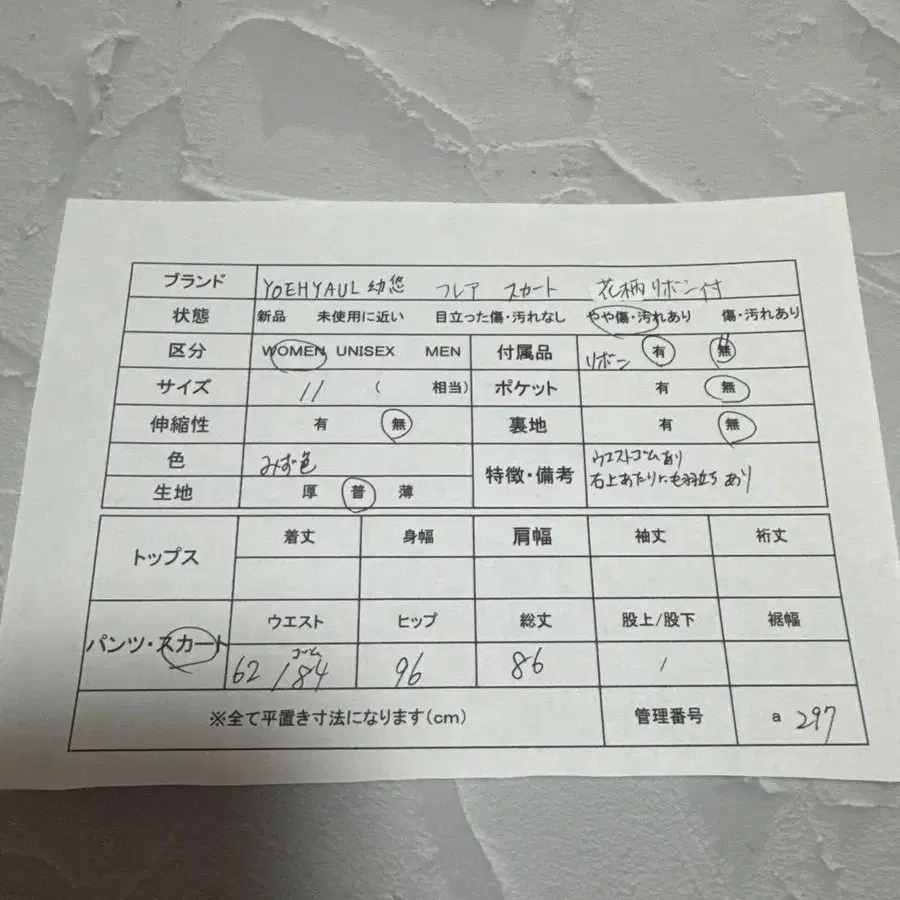 ブランド YOEHYAUL 幼悠 フレア スカート 花柄リボン付
状態 新品 未使用に近い 目立った傷・汚れなし やや傷・汚れあり 傷・汚れあり
区分 WOMEN UNISEX MEN 付属品 リボン 有 無
サイズ 11 ( 相当) ポケット 有 無
伸縮性 有 無 裏地 有 無
色 みず色 特徴・備考 ウエストゴムあり
右上あたりに毛羽立ちあり
生地 厚 普 薄
トップス 着丈 身幅 肩幅 袖丈 裄丈
パンツ・スカート ウエスト ヒップ 総丈 股上/股下 裾幅
ゴム
62 / 84 96 86 /
※全て平置き寸法になります(cm) 管理番号 a 297